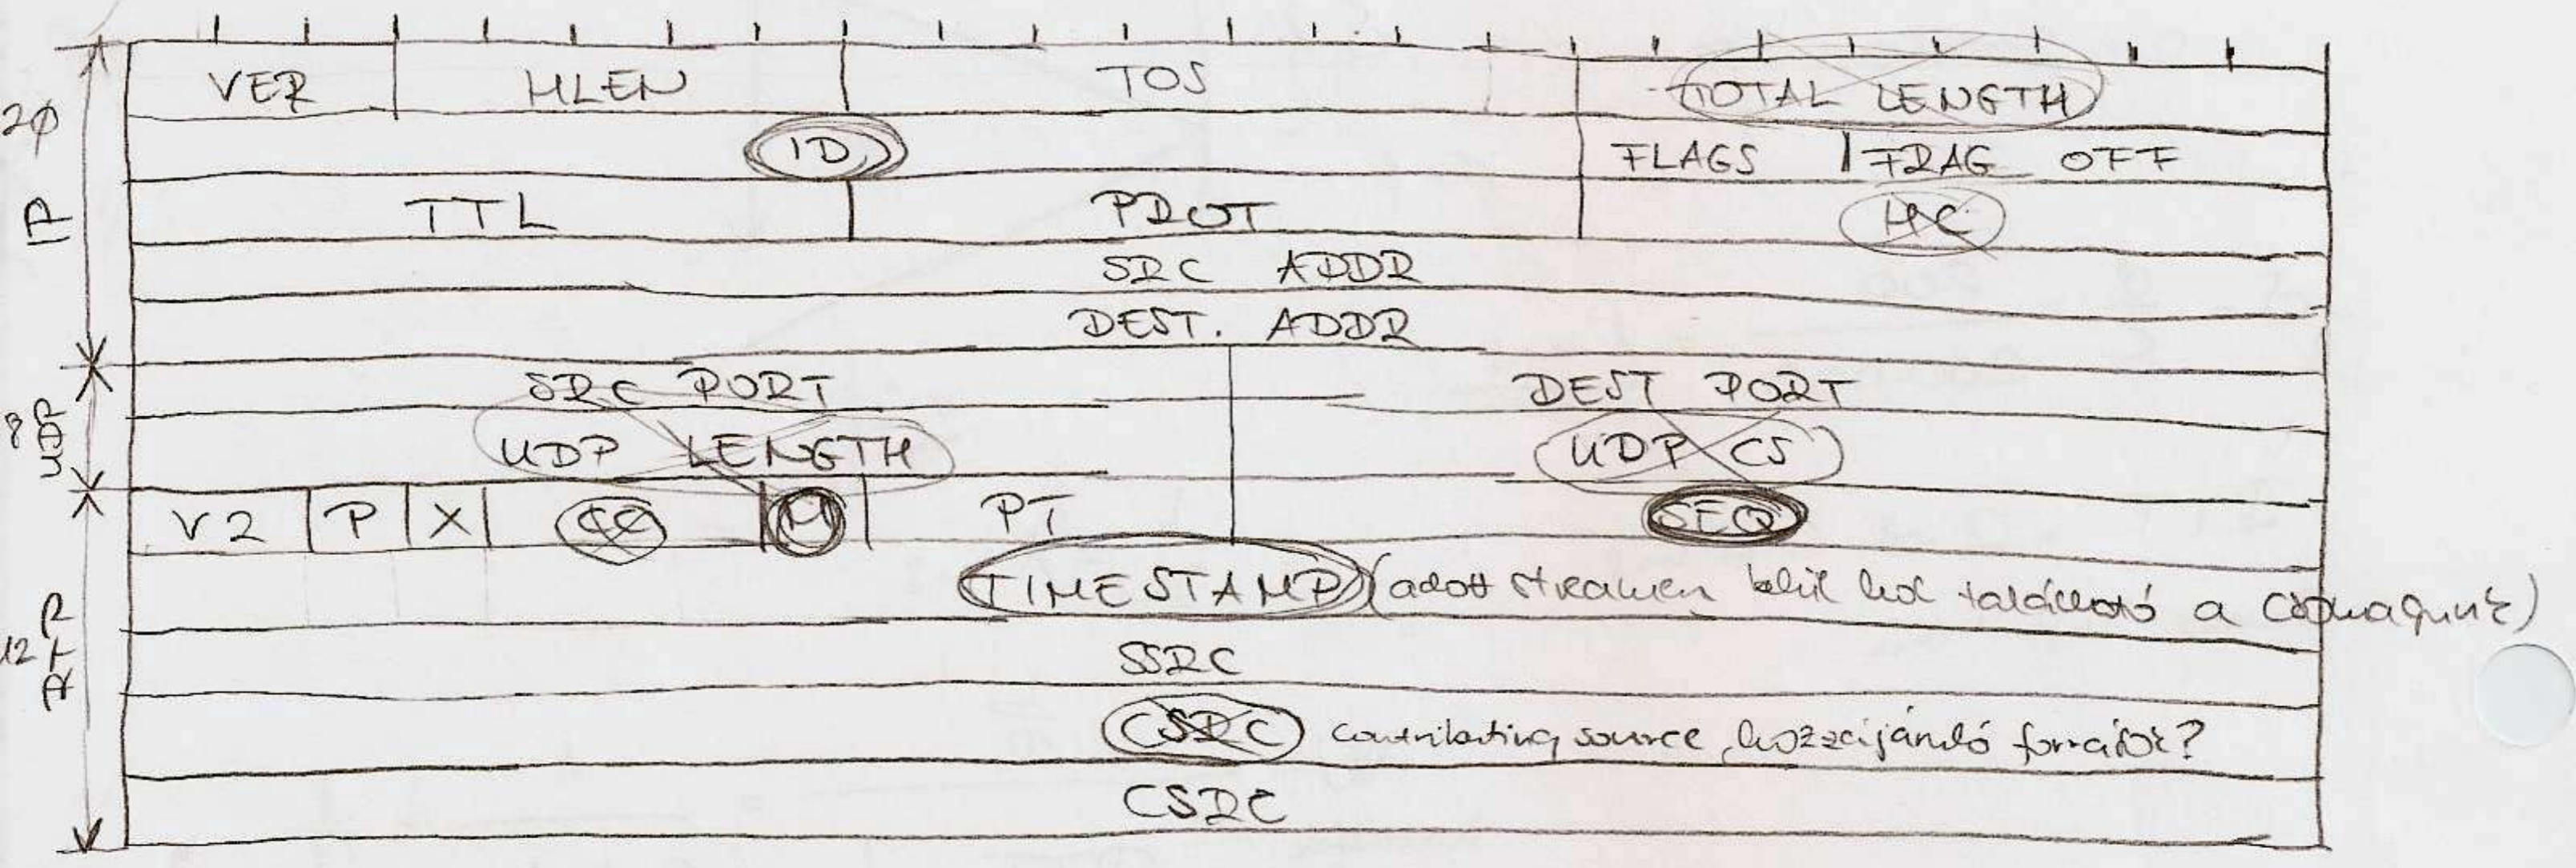 VER HLEN TOS TOTAL LENGTH
20 ID FLAGS FRAG OFF
IP TTL PROT HC
SRC ADDR
DEST. ADDR
SRC PORT DEST PORT
8 UDP UDP LENGTH UDP CS
V2 P X CC M PT SEQ
TIMESTAMP (adott streamen belül hol található a csomagunk)
12 RTP SSRC
CSRC contributing source, hozzájáruló források?
CSRC